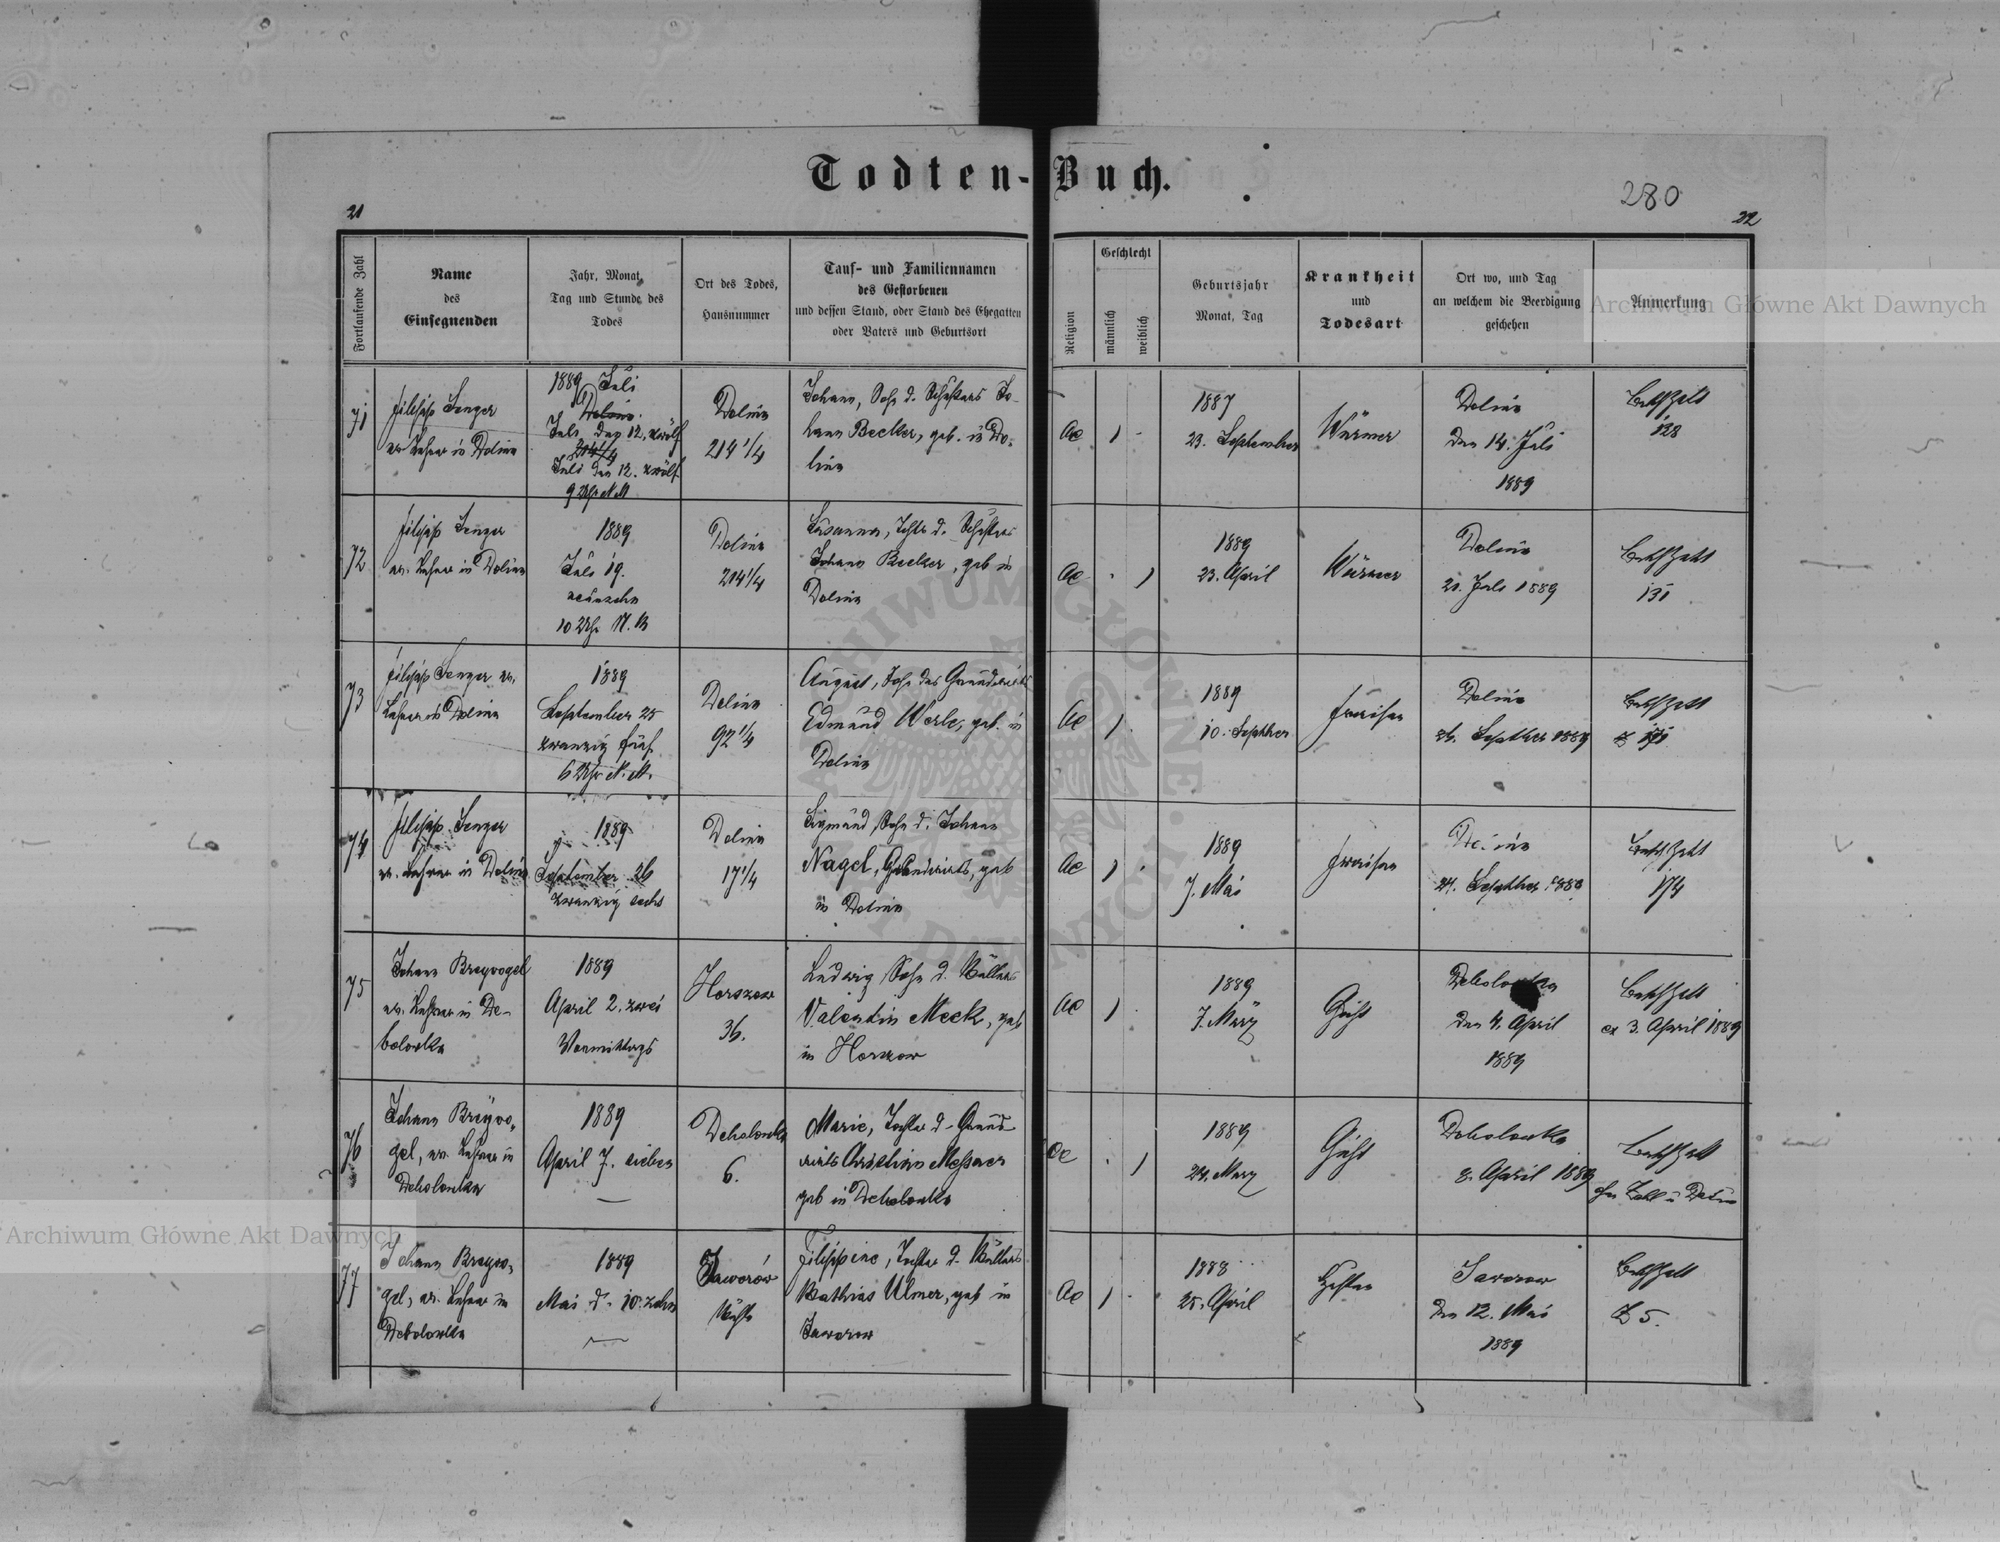 Todten-Buch.
280
21
22
Fortlaufende Zahl
Name
des
Einsegnenden
Jahr, Monat,
Tag und Stunde des
Todes
Ort des Todes,
Hausnummer
Tauf- und Familiennamen
des Gestorbenen
und dessen Stand, oder Stand des Ehegatten
oder Vaters und Geburtsort
Religion
Geschlecht
männlich
weiblich
Geburtsjahr
Monat, Tag
Krankheit
und
Todesart
Ort wo, und Tag
an welchem die Beerdigung
geschehen
Anmerkung
Archiwum Główne Akt Dawnych
71
Filipp Senger
ev. Lehrer in Dolina
1889 Juli
Dolina
Juli den 12. zwölf
214 1/4
Juli den 12. zwölf
9 Uhr
Dolina
214 1/4
Johann, Sohn d. Schusters Jo-
hann Becker, geb. in Do-
lina
1887
23. September
Würmer
Dolina
den 14. Juli
1889
128
72
Filipp Senger
ev. Lehrer in Dolina
1889
Juli 19.
neunzehn
10 Uhr
Dolina
214 1/4
Susanna, Tochter d. Schusters
Johann Becker, geb in
Dolina
1889
23. April
Würmer
Dolina
21. Juli 1889
131
73
Filipp Senger ev.
Lehrer in Dolina
1889
September 25
zwanzig fünf
6 Uhr N.M.
Dolina
92 1/4
August, Sohn des Grundwirts
Edmund Werle, geb. in
Dolina
1889
10. September
Fraisen
Dolina
26. September 1889
74
Filipp Senger
ev. Lehrer in Dolina
1889
September 26
zwanzig sechs
Dolina
17 1/4
Sigmund, Sohn d. Johann
Nagel, Grundwirts, geb
in Dolina
1889
7. Mai
Fraisen
Dolina
174
75
Johann Breyvogel
ev. Lehrer in De-
bolowka
1889
April 2. zwei
Vormittags
Horszow
36.
Ludwig Sohn d. Müllers
Valentin Meck, geb
in Horszow
1889
7. März
Gicht
Debolowka
den 4. April
1889
ex 3. April 1889
76
Johann Breyvo-
gel, ev. Lehrer in
Debolowka
1889
April 7. sieben
Debolowka
6.
Marie, Tochter d. Grund-
wirts Christian Messner
geb in Debolowka
1889
24. März
Gicht
Debolowka
8. April 1889
77
Johann Breyvo-
gel, ev. Lehrer in
Debolowka
1889
Mai d. 10. zehn
Jaworów
Mühle
Filippine, Tochter d. Müllers
Mathias Ulmer, geb in
Jaworow
1888
25. April
Husten
Jaworow
den 12. Mai
1889
Z 5.
Archiwum Główne Akt Dawnych
ARCHIWUM GŁÓWNE AKT DAWNYCH